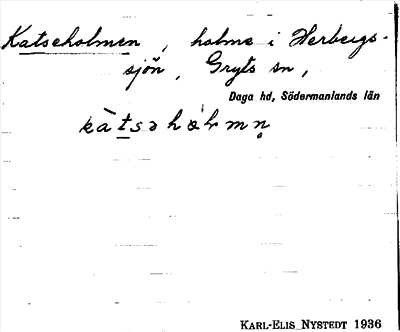 Katseholmen, holme i Herbergs-
sjön, Gryts sn,
Daga hd, Södermanlands län
kàtsəhòlmn̥
KARL-ELIS NYSTEDT 1936